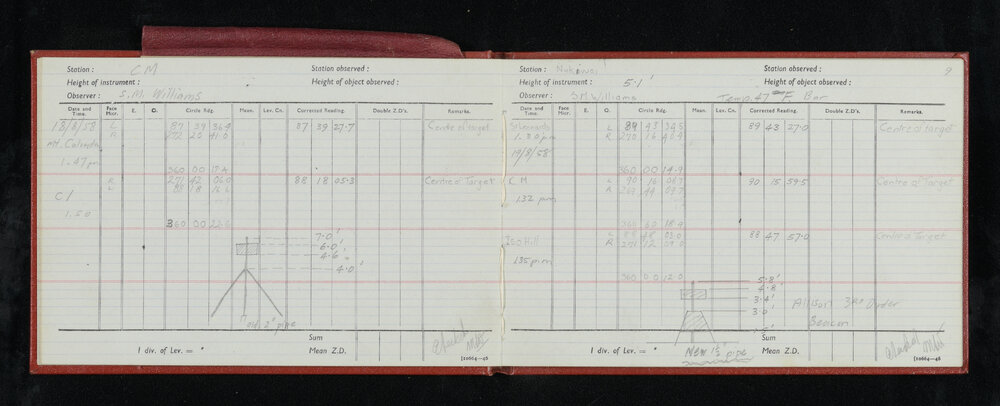 Station : CM Station observed :
Height of instrument : Height of object observed :
Observer : S.M. Williams
Date and Time. Face Micr. E. O. Circle Rdg. Mean. Lev. Cn. Corrected Reading. Double Z.D's. Remarks.
18/8/58 L 87 39 36.4 87 39 27.7 Centre of target
R 272 20 41.0
Mt.
1.47 pm
360 00 17.4
R 271 42 06.0 88 18 05.3 Centre of Target
L 88 18 16.6
C1
1.50
360 00 22.6
7.0'
6.0'
4.6'
4.0'
old 2" pipe
Sum
1 div. of Lev. = " Mean Z.D.
Checked
J10664—46
Station : Station observed : 9
Height of instrument : 5.1' Height of object observed :
Observer : SM Williams Temp. 47° F Bar
Date and Time. Face Micr. E. O. Circle Rdg. Mean. Lev. Cn. Corrected Reading. Double Z.D's. Remarks.
St Bernards L 89 43 34.5 89 43 27.0 Centre of target
1.30 pm R 270 16 40.4
19/8/58
360 00 14.9
CM L 90 15 90 15 59.5 Centre of Target
132 pm R 269 44 09.7
360 00 18.9
Iso Hill L 88 48 03.0 88 47 57.0 Centre of Target
R 271 12 09.0
135 p.m
360 00 12.0
5.8'
4.8'
3.4'
3.0'
Allison 3rd Order
Beacon
New 1½" pipe
Sum
1 div. of Lev. = " Mean Z.D.
Checked
J10664—46